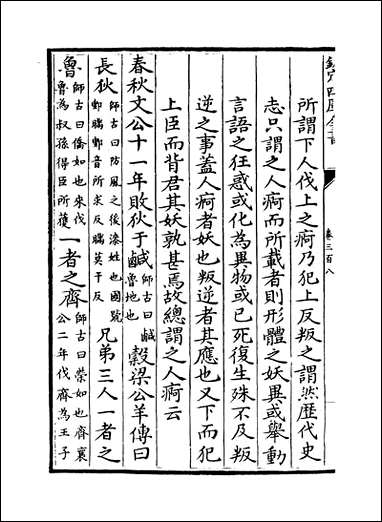 欽定四庫全書
卷三百八
所謂下人伐上之痾乃犯上反叛之謂然歷代史
志只謂之人痾而所載者則形體之妖異或舉動
言語之狂惑或化為異物或已死復生殊不及叛
逆之事蓋人痾者妖也叛逆者其應也又下而犯
上臣而背君其妖孰甚焉故總謂之人痾云
春秋文公十一年敗狄于鹹師古曰鹹魯地也穀梁公羊傳曰
長狄師古曰防風之後漆姓也國號鄋瞞鄋音所求反瞞莫干反兄弟三人一者之
魯師古曰僑如也來伐魯為叔孫得臣所獲一者之齊師古曰榮如也齊襄公二年伐齊為王子